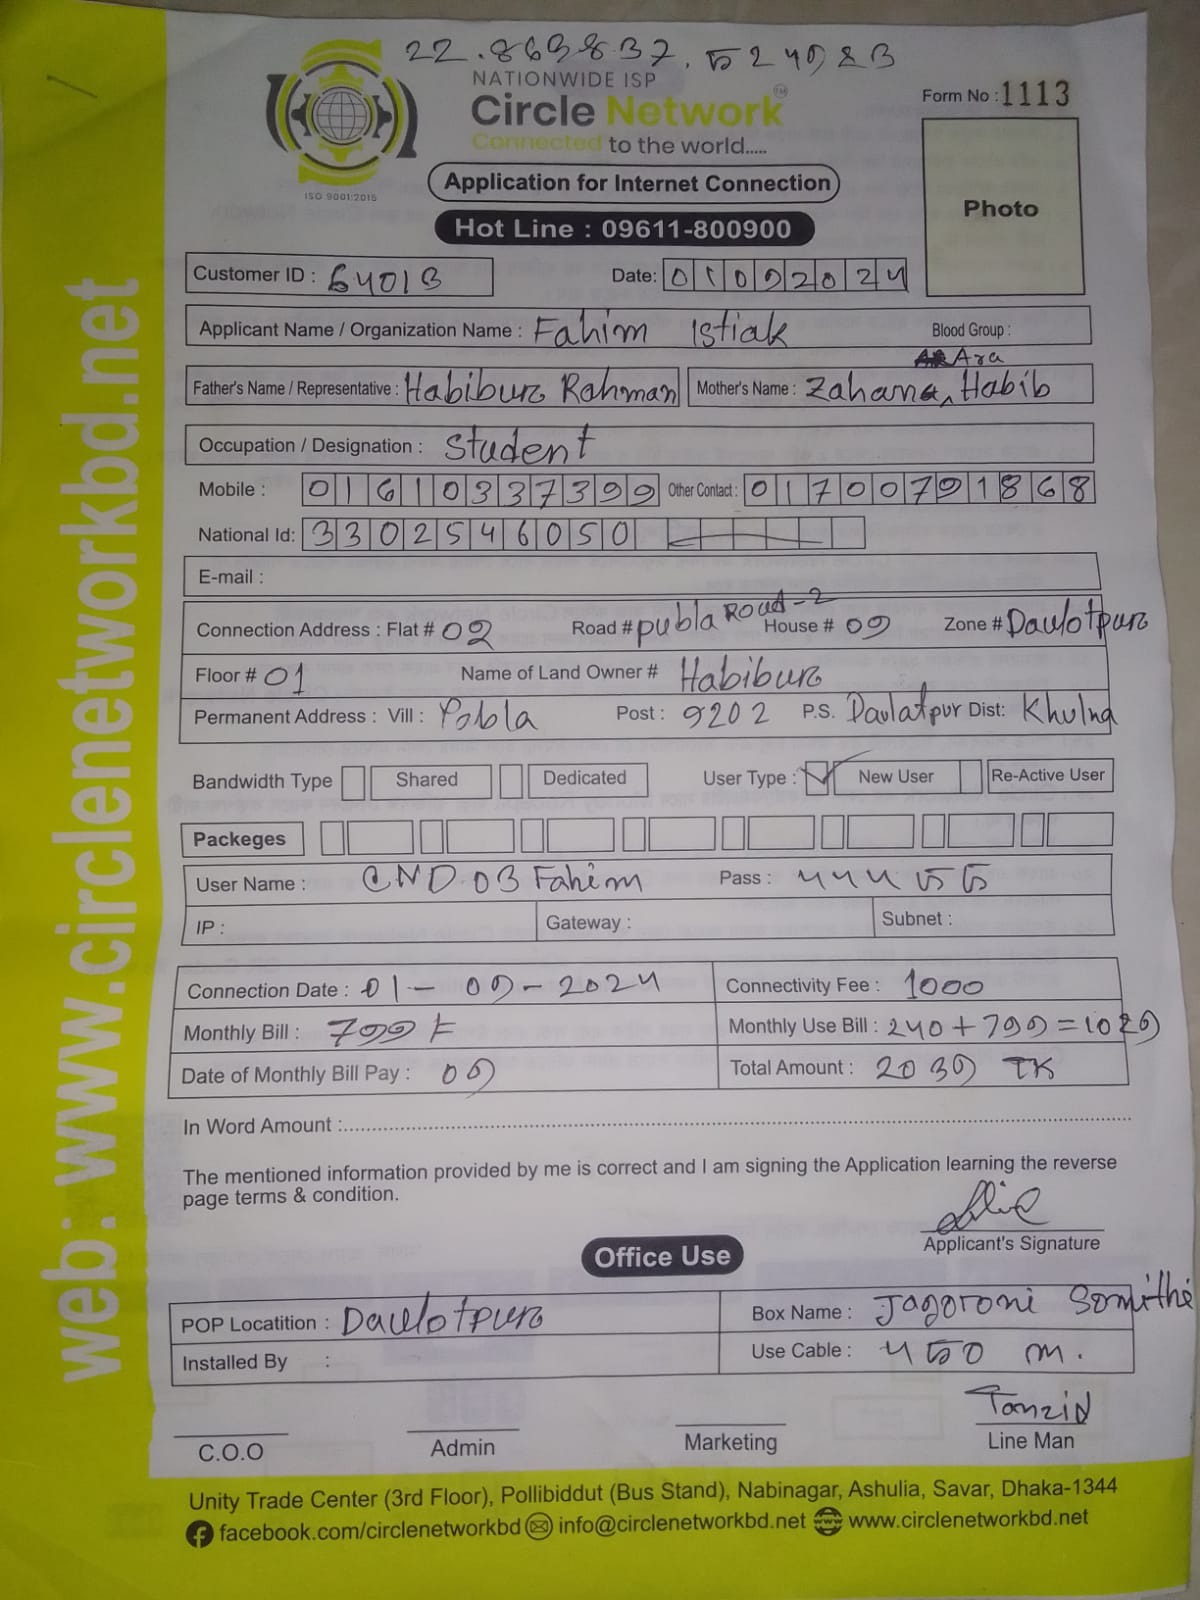 NATIONWIDE ISP
Circle Network
TM
Connected to the world.....
ISO 9001:2015
Form No : 1113
Photo
Application for Internet Connection
Hot Line : 09611-800900
Customer ID : 64013
Date: 01092024
Applicant Name / Organization Name : Fahim Istiak
Blood Group :
Father's Name / Representative : Habibur Rahman
Mother's Name : Zahana Ara Habib
Occupation / Designation : Student
Mobile : 01610337399
Other Contact : 01700791868
National Id: 3302546050
E-mail :
Connection Address : Flat # 02 Road # publa Road-2 House # 09 Zone # Daulotpur
Floor # 01 Name of Land Owner # Habibur
Permanent Address : Vill : Pabla Post : 9202 P.S. Daulatpur Dist: Khulna
Bandwidth Type Shared Dedicated User Type : New User Re-Active User
Packeges
User Name : CND.03 Fahim Pass :
IP : Gateway : Subnet :
Connection Date : 01-09-2024 Connectivity Fee : 1000
Monthly Bill : 799 Monthly Use Bill : 240+799=1029
Date of Monthly Bill Pay : 09 Total Amount : 2039 TK
In Word Amount :
The mentioned information provided by me is correct and I am signing the Application learning the reverse
page terms & condition.
Applicant's Signature
Office Use
POP Locatition : Daulotpur Box Name : Jagoroni Somithi
Installed By : Use Cable : m.
Tanzid
C.O.O Admin Marketing Line Man
Unity Trade Center (3rd Floor), Pollibiddut (Bus Stand), Nabinagar, Ashulia, Savar, Dhaka-1344
facebook.com/circlenetworkbd info@circlenetworkbd.net www.circlenetworkbd.net
web: www.circlenetworkbd.net